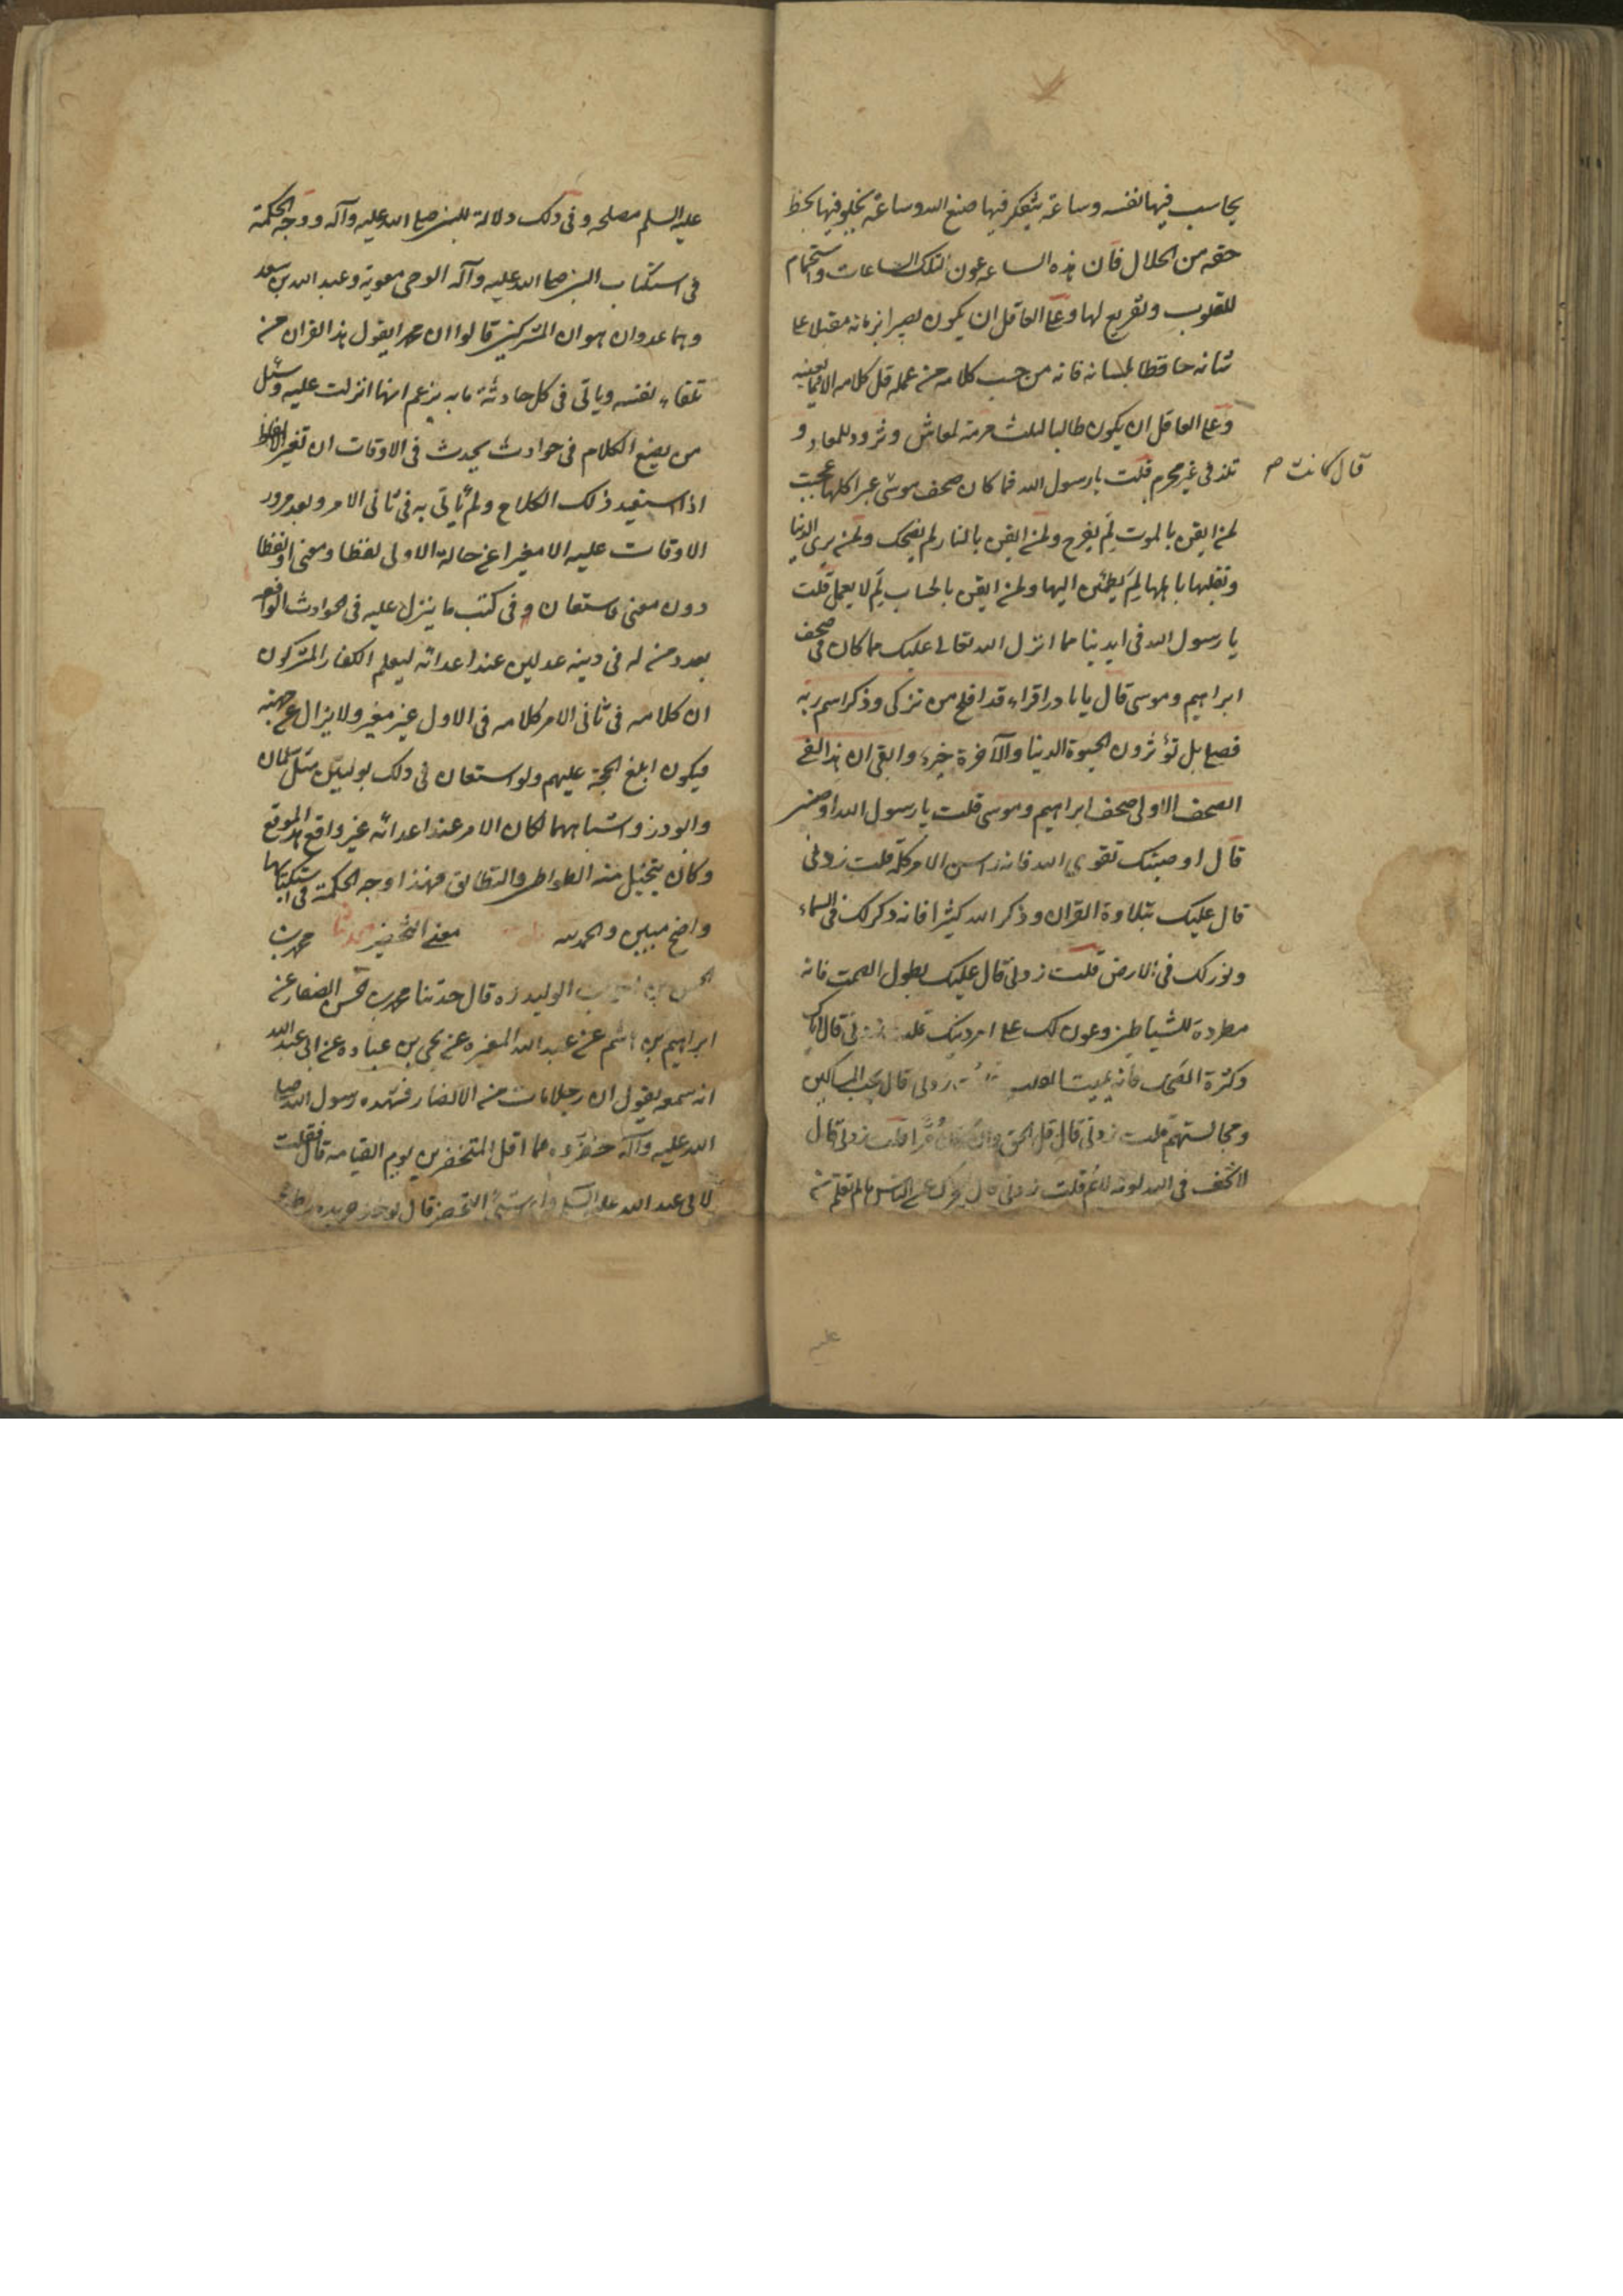 يحاسب فيها نفسه وساعة يتفكر فيها صنع الله وساعة يخلو فيها بحظ
حقه من الحلال فان هذه الساعه عون لتلك الساعات واستجمام
للقلوب وتفريع لها وعلى العاقل ان يكون بصيرا بزمانه مقبلا على
شانه حافظا للسانه فانه من حسب كلامه من عمله قل كلامه الا فيما يعنيه
وعلى العاقل ان يكون طالبا لثلث مرمة لمعاش وتزود للمعاد و
تلذ فى غير محرم قلت يا رسول الله فما كان صحف موسى عبرا كلها عجبت
قال كانت
لمن ايقن بالموت لم يفرح ولمن ايقن بالنار لم يضحك ولمن يرى الدنيا
وتقلبها باهلها لم يطمئن اليها ولمن ايقن بالحساب لم لا يعمل قلت
يا رسول الله فى ايدينا مما انزل الله تعالى عليك مما كان فى صحف
ابراهيم وموسى قال يا با در اقراء قد افلح من تزكى وذكر اسم ربه
فصلى بل تؤثرون الحيوة الدنيا والآخرة خير وابقى ان هذا لفى
الصحف الاولى صحف ابراهيم وموسى قلت يا رسول الله اوصنى
قال اوصيتك تقوى الله فانه راسن الامر كله قلت زدنى
قال عليك بتلاوة القران وذكر الله كثيرا فانه ذكر لك فى السماء
ونور لك فى الارض قلت زدنى قال عليك بطول الصمت فانه
مطردة للشياطين وعون لك على امر دينك قلت زدنى قال اياك
وكثرة الضحك فانه يميت القلب قلت زدنى قال حب المساكين
ومجالستهم قلت زدنى قال قل الحق وان كان مرا قلت زدنى قال
لا تخف فى الله لومة لائم قلت زدنى قال ليحجزك عن الناس ما لم تعلم من
عليه السلم مصلحه وفى ذلك دلالة للنبى صلى الله عليه وآله ووجه الحكمة
فى استكتاب النبى صلى الله عليه وآله الوحى معوية وعبد الله بن سعد
وهما عدوان هو ان المشركين قالوا ان محمدا يقول هذا القران من
تلقاء نفسه وياتى فى كل حادثة مابه يزعم انها انزلت عليه وسبيل
من يضع الكلام فى حوادث يحدث فى الاوقات ان تغير الالفاظ
اذا استعيد ذلك الكلام ولم يأتى به فى ثانى الامر وبعد مرور
الاوقات عليه الا مغيرا عن حالة الاولى لفظا ومعنى او لفظا
دون معنى فاستعان فى كتب ما ينزل عليه فى الحوادث الواقعه
بعدوين له فى دينه عدلين عند اعدائه ليعلم الكفار المشركون
ان كلامه فى ثانى الامر كلامه فى الاول غير مغير ولا يزال عن جهته
فيكون ابلغ الحجة عليهم ولو استعان فى ذلك بوليين مثل سلمان
وابو در واشباههما لكان الامر عند اعدائه غير واقع هذا الموقع
وكان يتخيل منه التواطى والتطابق فهذا وجه الحكمة فى استكتابهما
واضح مبين والحمد لله معنى التخضير حدثنا محمد بن
الحسن بن احمد بن الوليد ره قال حدثنا محمد بن الحسن الصفار عن
ابراهيم بن هاشم عن عبد الله المغيره عن يحيى بن عباده عن ابى عبد الله
انه سمعه يقول ان رجلا مات من الانصار فشهده رسول الله صلى
الله عليه وآله خضروه فما اقل المتخضرين يوم القيامه قال فقلت
لابى عبد الله عليه السلم واى شئ التخضير قال يوخذ جريده رطبة